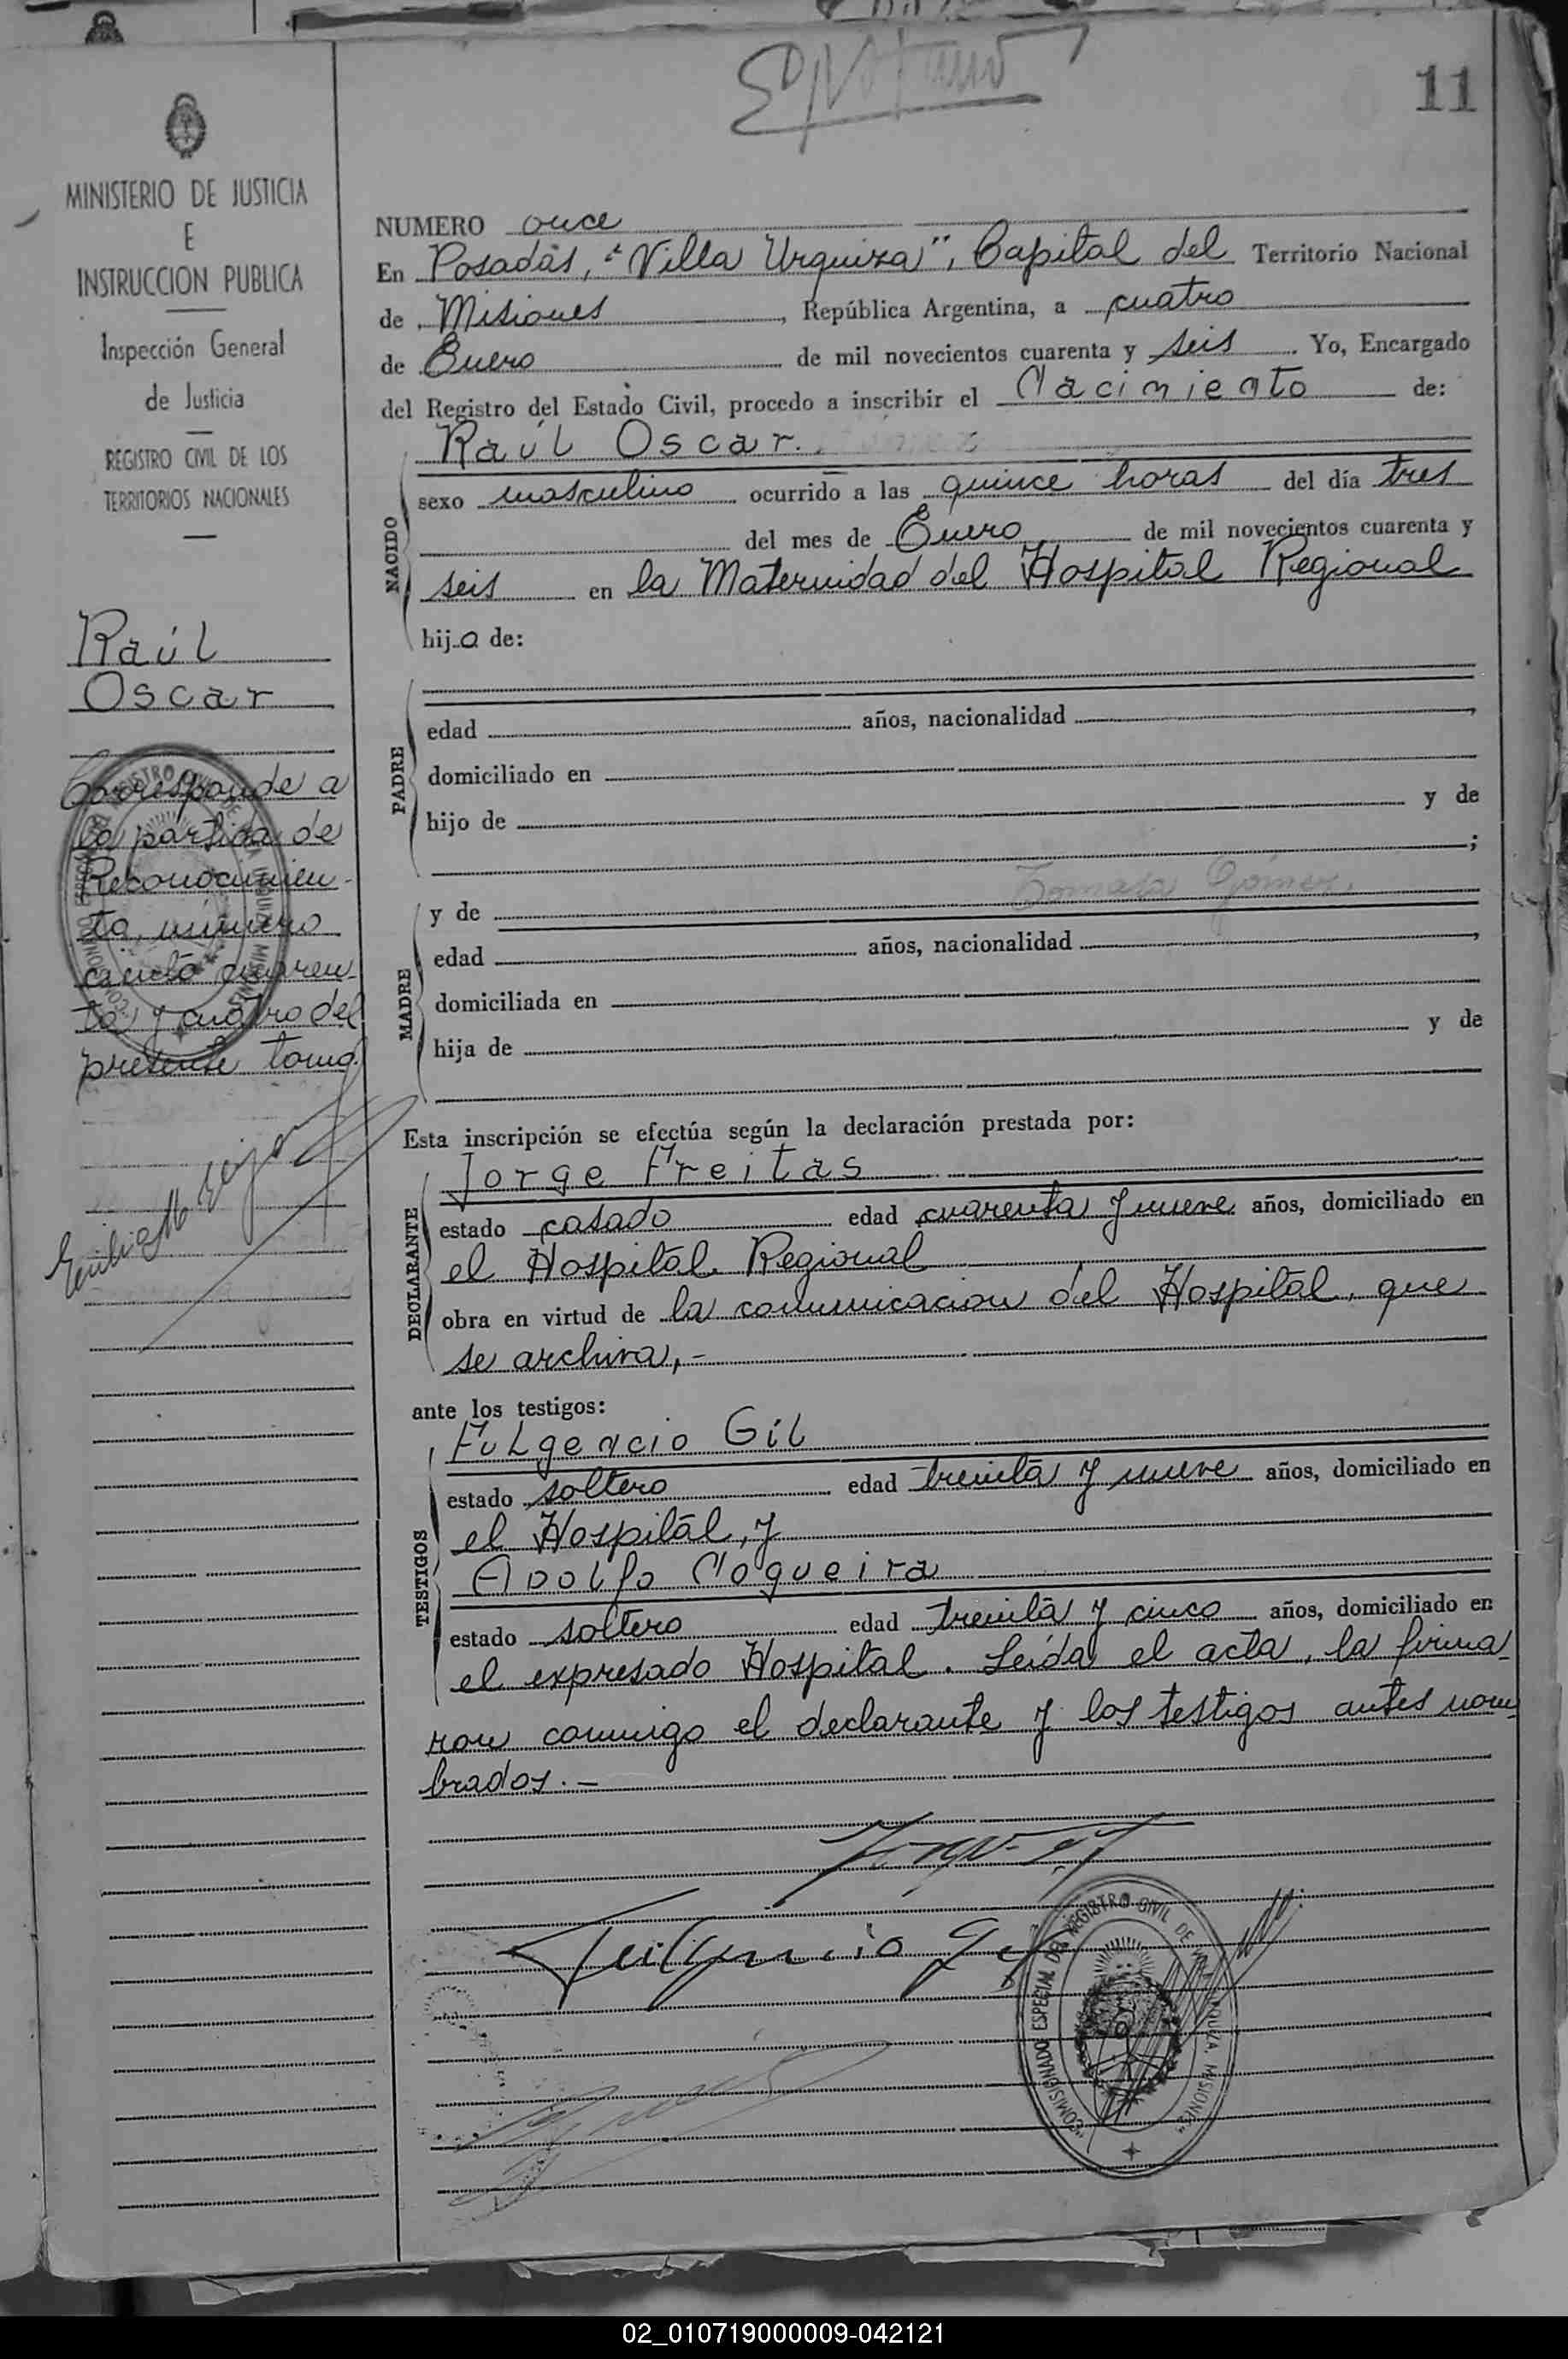 11
MINISTERIO DE JUSTICIA
E
INSTRUCCION PUBLICA
Inspección General
de Justicia
REGISTRO CIVIL DE LOS
TERRITORIOS NACIONALES
Raúl
Oscar
Corresponde a
la partida de
Reconocimien-
to, número
ciento cuaren-
ta y cuatro del
presente tomo.
NUMERO once
En Posadas, "Villa Urquiza", Capital del Territorio Nacional
de Misiones, República Argentina, a cuatro
de Enero de mil novecientos cuarenta y seis. Yo, Encargado
del Registro del Estado Civil, procedo a inscribir el Nacimiento de:
Raúl Oscar.
NACIDO
sexo masculino ocurrido a las quince horas del día tres
del mes de Enero de mil novecientos cuarenta y
seis en la Maternidad del Hospital Regional
hijo de:
PADRE
edad años, nacionalidad ,
domiciliado en
hijo de y de
;
y de Tomasa Gómez.
MADRE
edad años, nacionalidad ,
domiciliada en
hija de y de
Esta inscripción se efectúa según la declaración prestada por:
Jorge Freitas
DECLARANTE
estado casado edad cuarenta y nueve años, domiciliado en
el Hospital Regional
obra en virtud de la comunicación del Hospital, que
se archiva,-
ante los testigos:
Fulgencio Gil
TESTIGOS
estado soltero edad treinta y nueve años, domiciliado en
el Hospital, y
Adolfo Nogueira
estado soltero edad treinta y cinco años, domiciliado en
el expresado Hospital. Leída el acta, la firma-
ron conmigo el declarante y los testigos antes nom-
brados.-
Fulgencio Gil
COMISIONADO ESPECIAL DEL REGISTRO CIVIL DE VILLA URQUIZA MISIONES
02_010719000009-042121